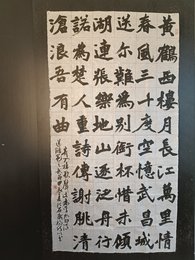 黃鶴西樓月長江萬里情
春風三十度空憶武昌城
送尔難為別銜杯惜未傾
湖連張樂地山逐泛舟行
諾為楚人重詩傳謝朓清
滄浪吾有曲
寄入棹歌聲